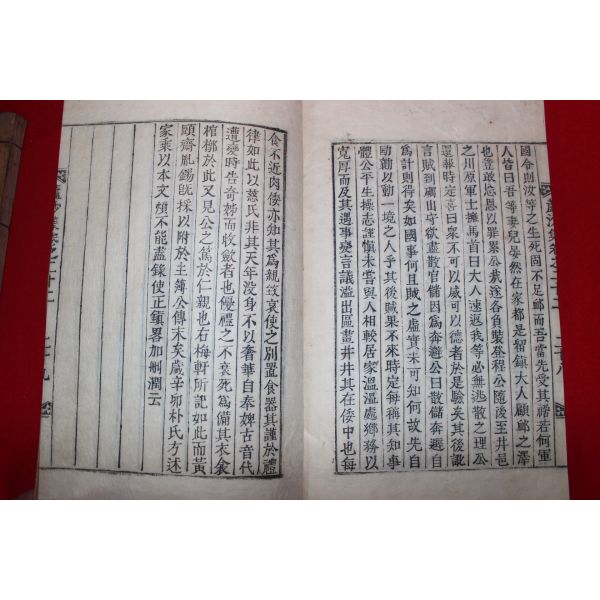 國命則汝等之生死固不足䘏而吾當先受其禍若何軍
人皆曰吾等妻兒晏然在家都是留鎭大人顧䘏之澤
也豈敢怨以罪累公哉遂各負裝登程公隨後至井邑
之川原軍士擁馬首曰大人速返我等必無逃散之理公
還報時定喜曰衆不可以威可以德者於是驗矣其後訛
言賊到礪山守欲盡散官儲因爲奔避公曰散儲奔避自
爲計則得矣如國事何且賊之虛實未可知何故先自
動劫以動一境之人乎其後賊果不來時定每稱其知事
體公平生操志謹愼未嘗與人相較居家溫溫處鄕務以
寬厚而及其遇事變言議溢出區畫井井其在倭中也每
食不近肉倭亦知其爲親致哀使之別置食器其謹於禮
律如此以慈氏非其天年沒身不以奢華自奉婢古音代
遭變時告奇
而收斂者也優禮之不衰死爲備其衣衾
棺槨於此又見公之篤於仁親也右梅軒所記如此而黃
頤齋胤錫旣採以附於主簿公傳末矣歲辛卯朴氏方述
家乘以本文煩不能盡錄使正鎭畧加刪潤云
二十八
二十九